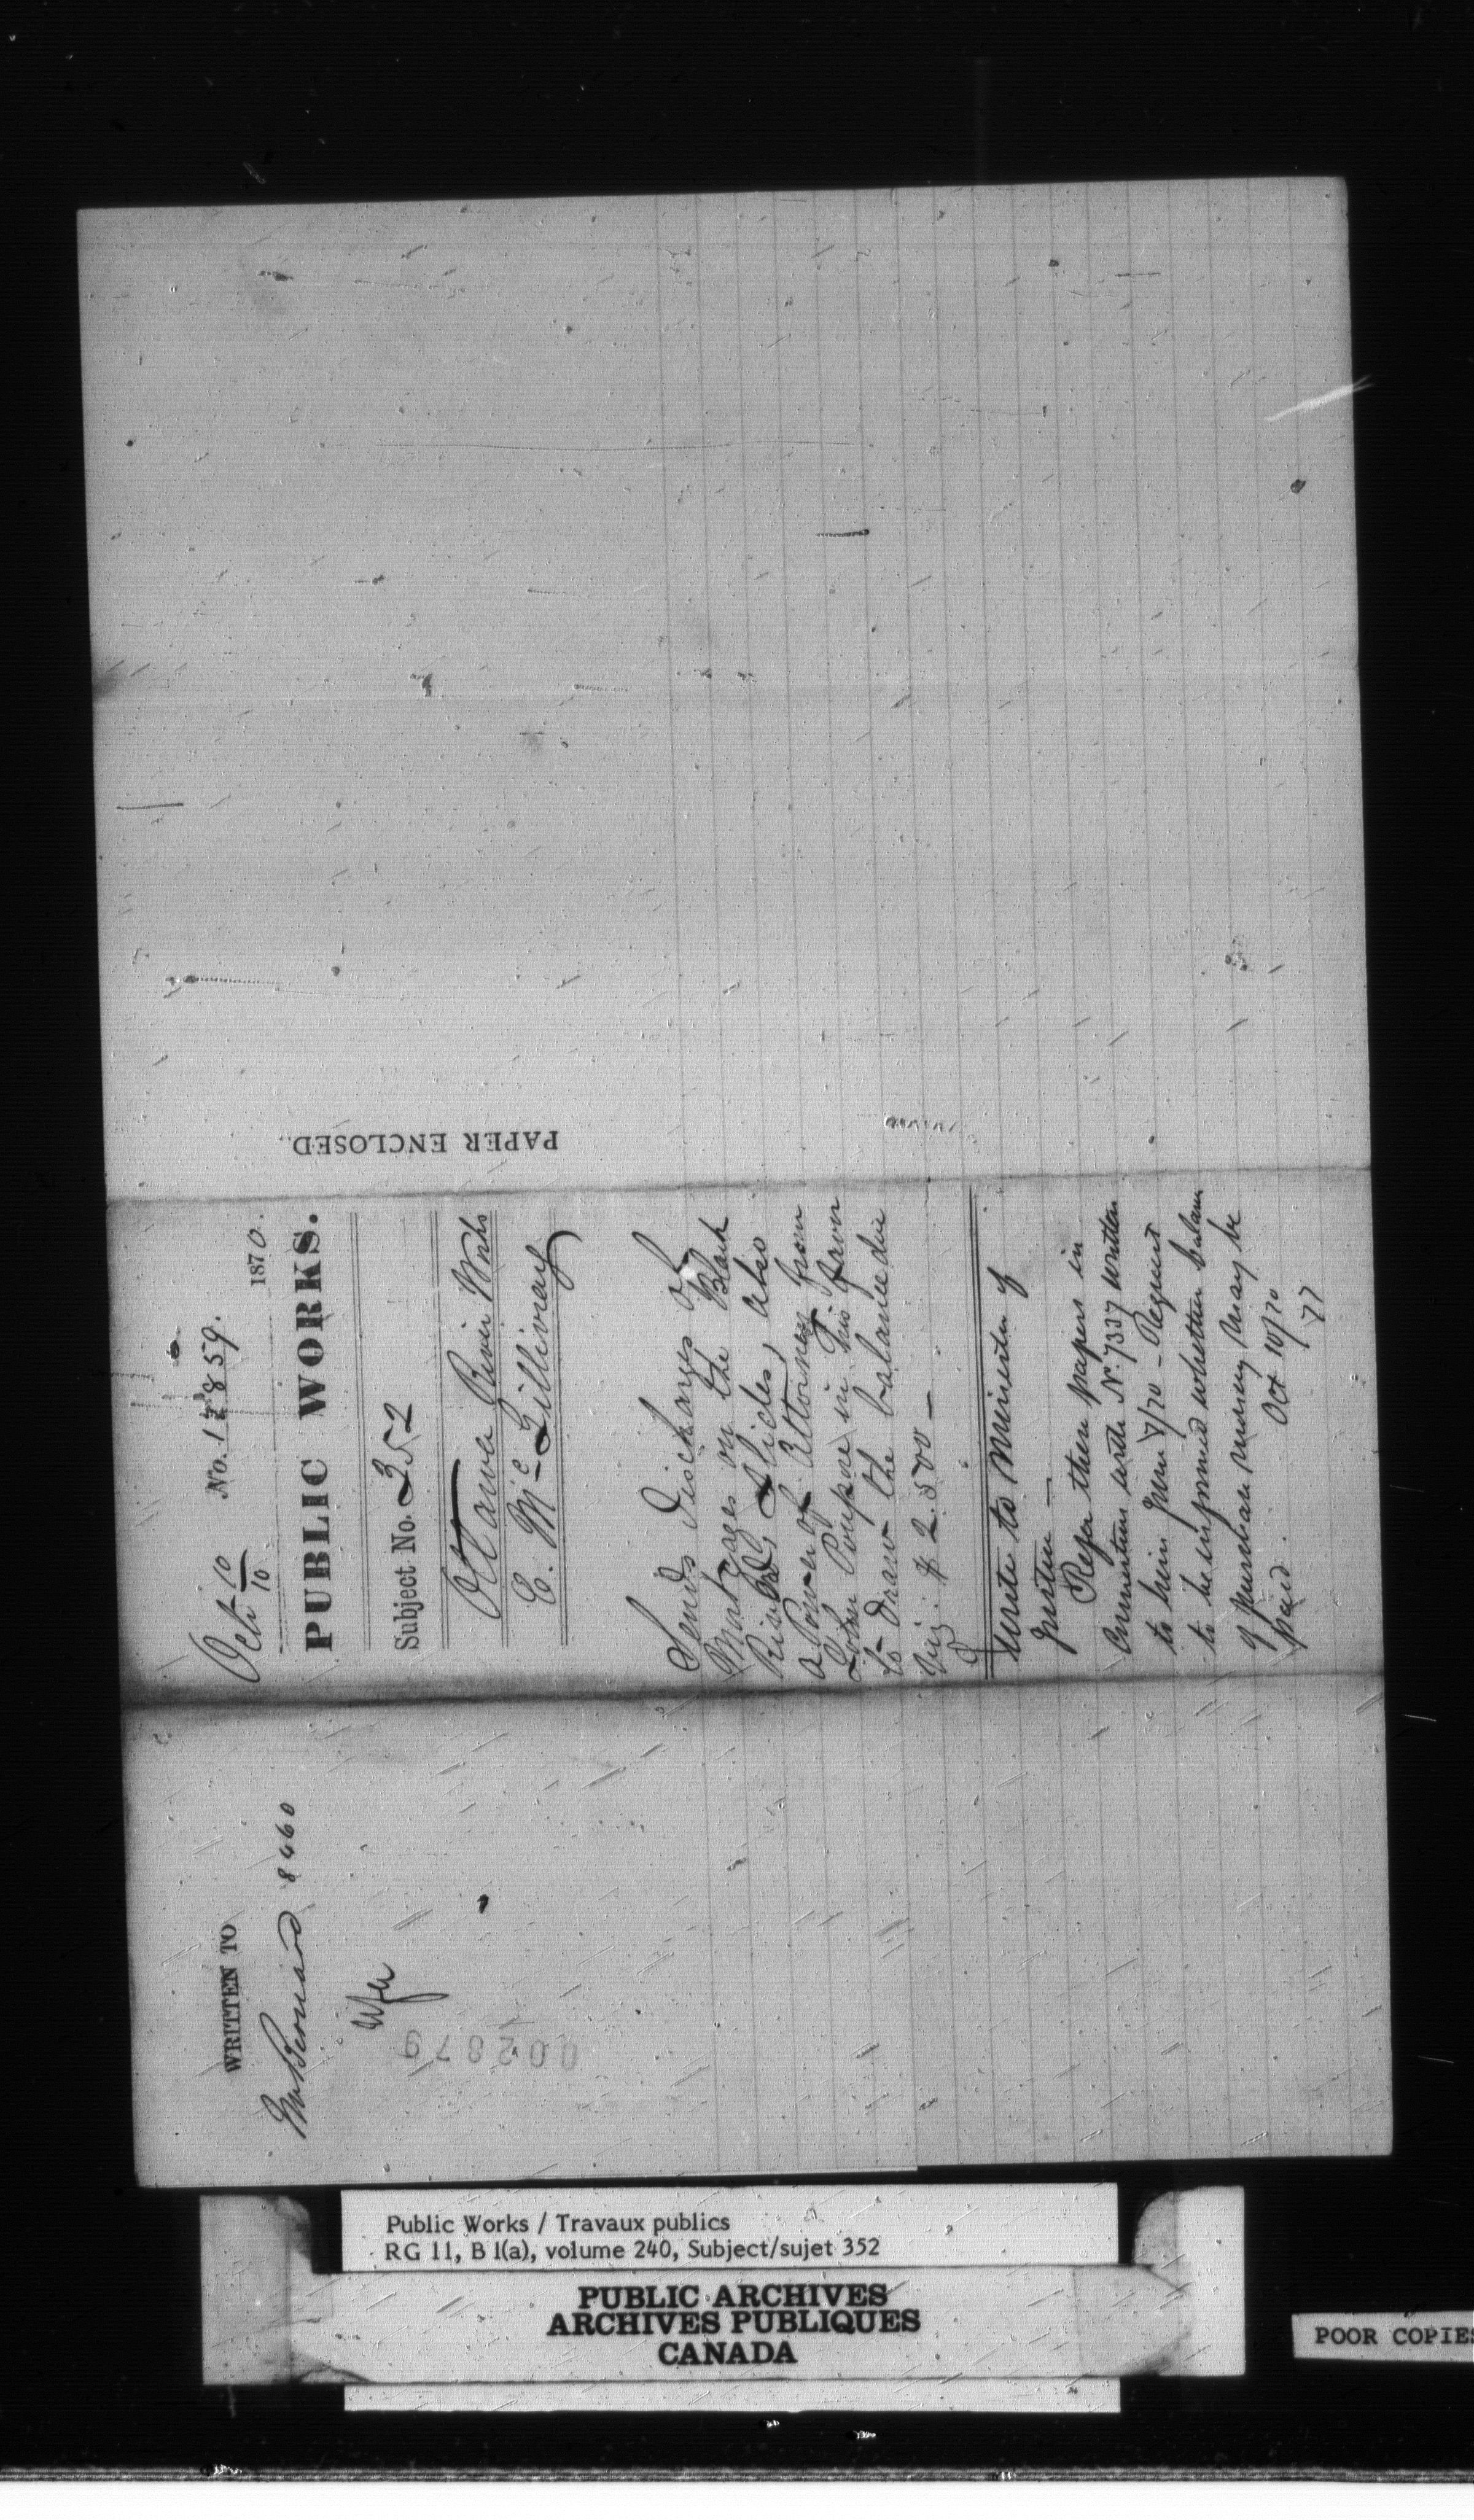 Oct 10/10 No. 12859. 1870.
PUBLIC WORKS.
Subject No. 352
Ottawa River Works
E. McGillivray
Sends discharges of
Mortgages on the Black
River Slides, also
a Power of Attorney from
John Poupore in his favor
to draw the balance due
viz: $2.500 —
Write to Minister of
Justice —
Refer these papers in
Connection with No. 7337 written
to him 7/70 — Request
to be informed whether balance
of purchase money may be
paid.
Oct 10/70
PAPER ENCLOSED.
WRITTEN TO
Mr Bernard 8460
002879
Public Works / Travaux publics
RG 11, B 1(a), volume 240, Subject/sujet 352
PUBLIC ARCHIVES
ARCHIVES PUBLIQUES
CANADA
POOR COPIES